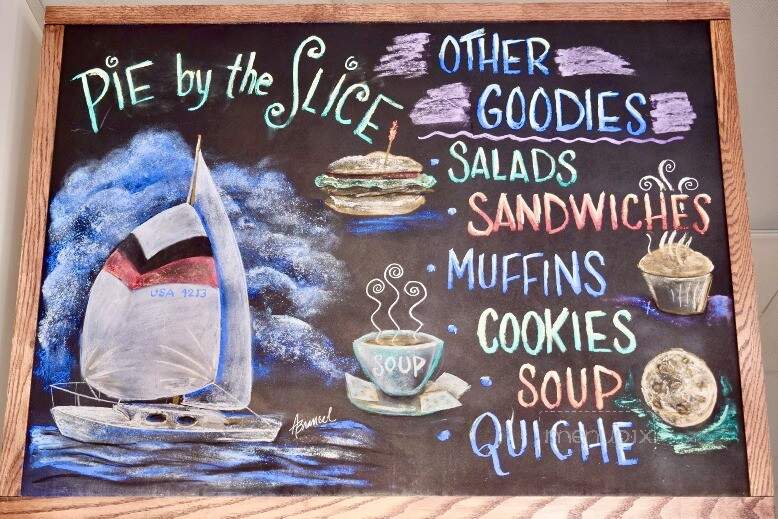 PIE by the SLICE
OTHER
GOODIES
SALADS
SANDWICHES
MUFFINS
COOKIES
SOUP
QUICHE
SOUP
USA 4213
menupix